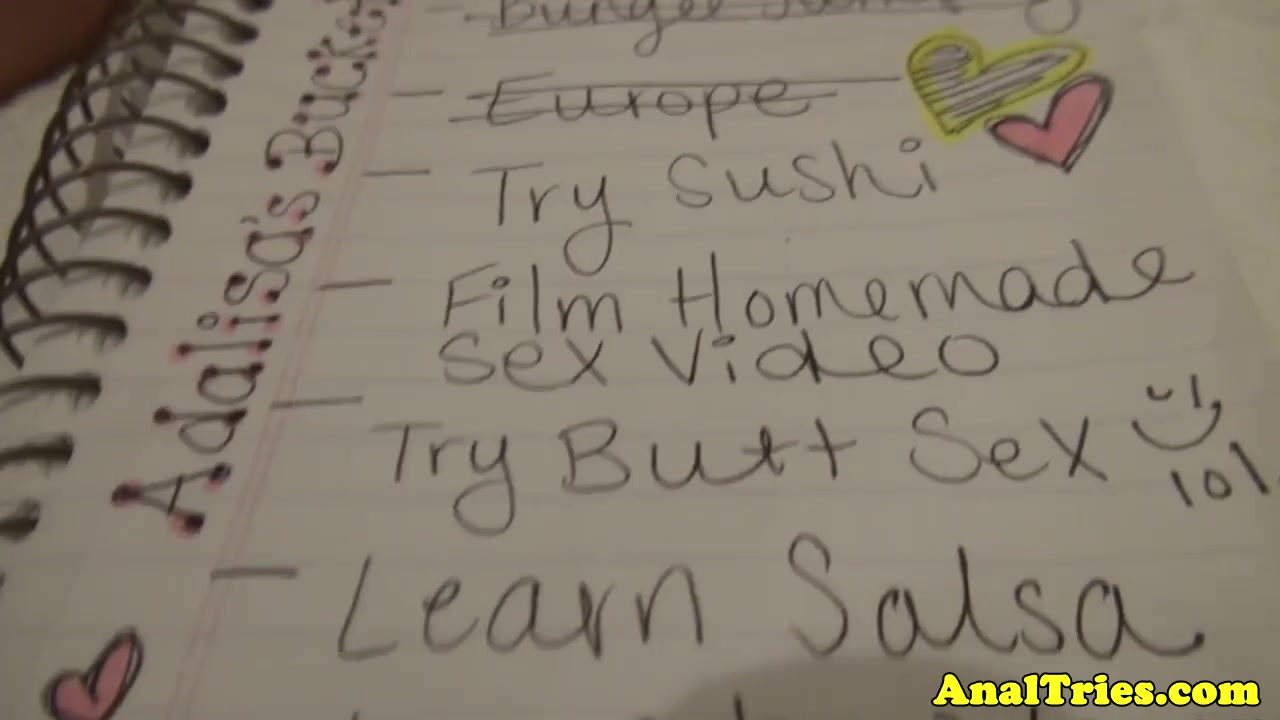 Adalisa's Buck
Bungee
Europe
Try Sushi
Film Homemade
Sex Video
Try Butt Sex
lol
Learn Salsa
AnalTries.com